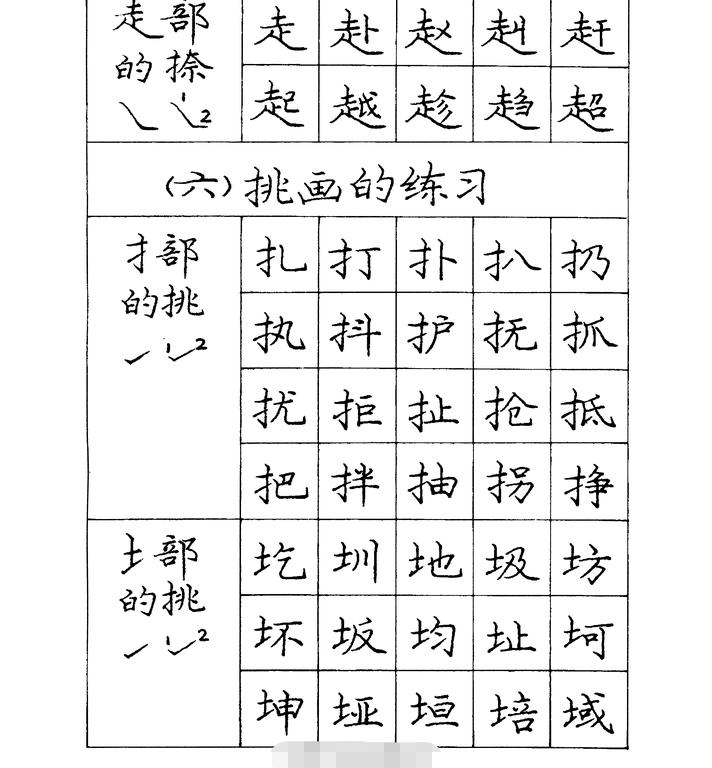 走部
的捺
1
2
走赴赵赳赶
起越趁趋超
（六）挑画的练习
扌部
的挑
1 2
扎打扑扒扔
执抖护抚抓
扰拒扯抢抵
把拌抽拐挣
土部
的挑
1 2
圪圳地圾坊
坏坂均址坷
坤垭垣培域